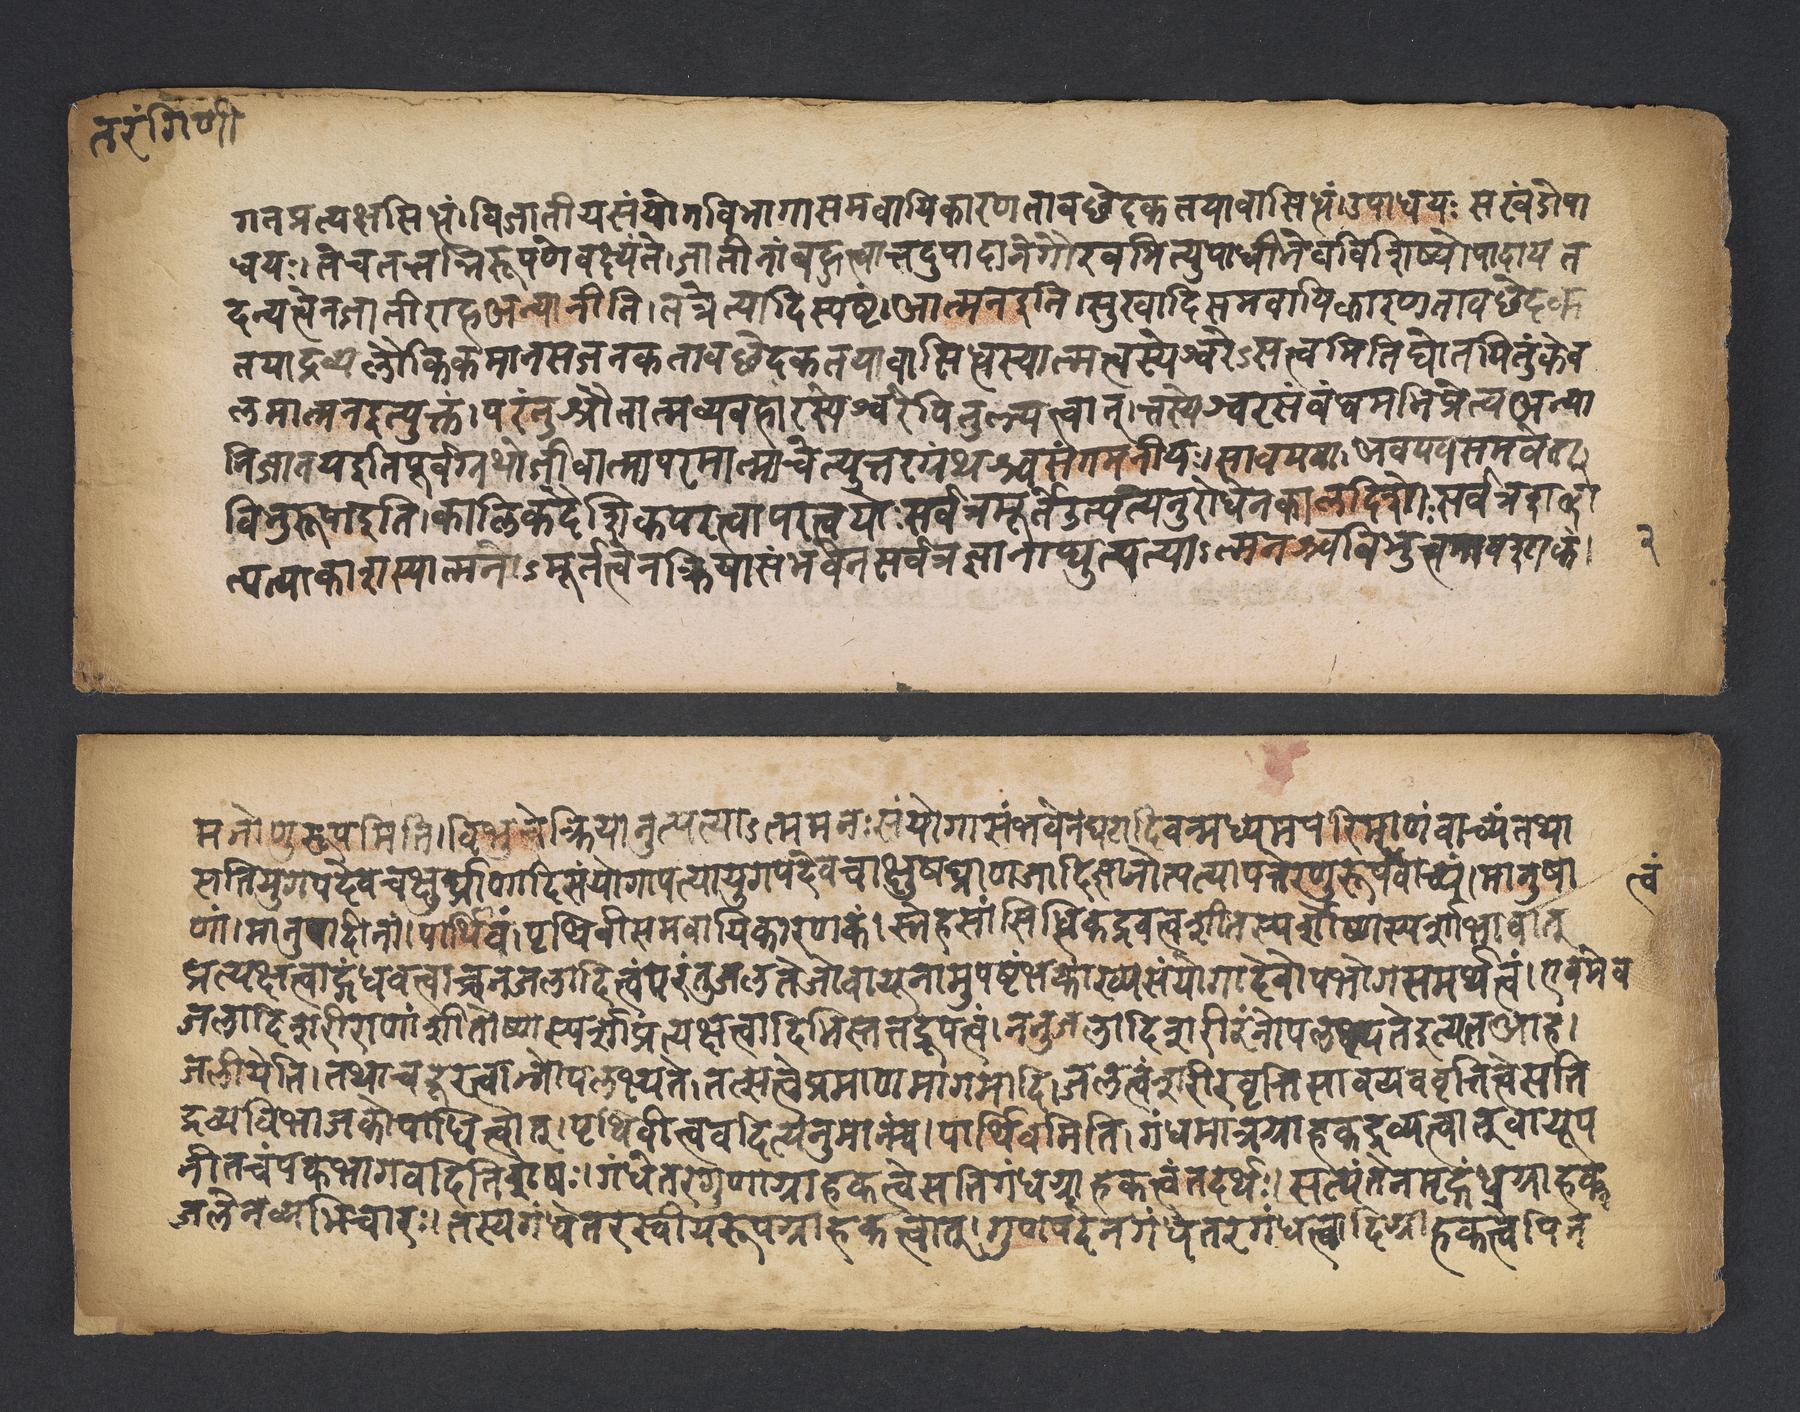 तरंगिणी
गतप्रत्यक्षसिद्धं।विजातीयसंयोगविभागासमवायिकारणतावछेदकतयावासिद्धं।उपाधयः सखंडोपा
धयः।तेचतत्तन्निरूपणेवक्ष्यंते।जातीनांबहुत्वात्तदुपादानेगौरवमित्युपाधीनेवविशिष्योपादायत
दन्यत्वेनजातीराहअन्यानीति।तत्रेत्यादिस्पष्टं।आत्मनइति।सुखादिसमवायिकारणतावछेदक
तयाद्रव्यलौकिकमानसजनकतावछेदकतयावासिद्धस्यात्मत्वस्येश्वरेऽसत्त्वमितिद्योतयितुंकेव
लमात्मनइत्युक्तं।परंतुश्रौतात्मव्यवहारस्येश्वरेपितुल्यत्वात्।तस्येश्वरसंबंधमभिप्रेत्यअन्या
निजातयइतिपूर्वग्रंथोजीवात्मापरमात्माचेत्युत्तरग्रंथश्चसंगमनीयः।सावयवाः अवयवसमवेताः
विभुरूपाइति।कालिकदैशिकपरत्वापरत्वयोःसर्वत्रमूर्तेउत्पत्त्यनुरोधेनकालदिशोःसर्वत्रशब्दो
त्पत्त्याकाशस्यात्मनोऽमूर्तत्वेनक्रियासंभवेनसर्वत्रज्ञानाद्युत्पत्त्याऽत्मनश्चविभुत्वमावश्यकं।
२
मनोणुरूपमिति।विभुत्वेक्रियानुत्पत्त्याऽत्ममनःसंयोगासंभवेनघटादिवन्मध्यमपरिमाणंवाच्यंतथा
सतियुगपदेवचक्षुर्घ्राणादिसंयोगापत्त्यायुगपदेवचाक्षुषघ्राणजादिज्ञानोत्पत्त्यापत्तेरणुरूपंवाच्यं।मानुषा
त्वं
णां।मानुषादीनां।पार्थिवं।पृथिवीसमवायिकारणकं।स्नेहसांसिद्धिकद्रवत्वशीतस्पर्शोष्णस्पर्शाभावात्
प्रत्यक्षत्वाद्गंधवत्वाच्चनजलादित्वंपरंतुजलतेजोवायूनामुपष्टंभकाख्यसंयोगादेवोपभोगसमर्थत्वं।एवमेव
जलादिशरीराणांशीतोष्णस्पर्शाप्रत्यक्षत्वादिभिस्तत्तद्रूपत्वं।ननुजलादिशरीरंनोपलभ्यतेइत्यतआह।
जलीयेति।तथाचदूरत्वान्नोपलभ्यते।तत्सत्वेप्रमाणमागमादि।जलत्वंशरीरवृत्तिसावयववृत्तित्वेसति
द्रव्यविभाजकोपाधित्वात्।पृथिवीत्ववदित्यनुमानंच।पार्थिवमिति।गंधमात्रग्राहकद्रव्यत्वात्वायूप
नीतचंपकभागवदितिशेषः।गंधेतरगुणाग्राहकत्वेसतिगंधग्राहकत्वंतदर्थः।सत्यंतेनमृद्गंधग्राहक
जलेनव्यभिचारः।तस्यगंधेतरस्वीयरूपग्राहकत्वात्।गुणपदेनगंधेतरगंधत्वादिग्राहकत्वेपिन